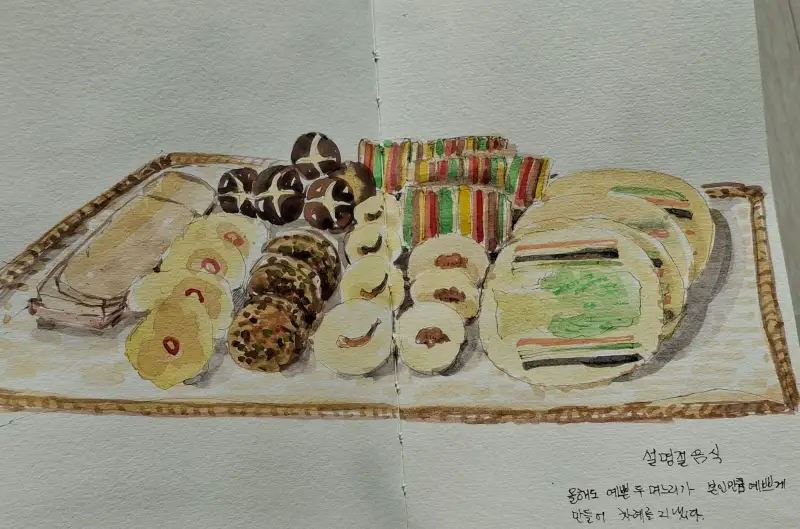 설명절음식
올해도 예쁜 두 며느리가 본인만큼 예쁘게
만들어 차례를 지냈다.